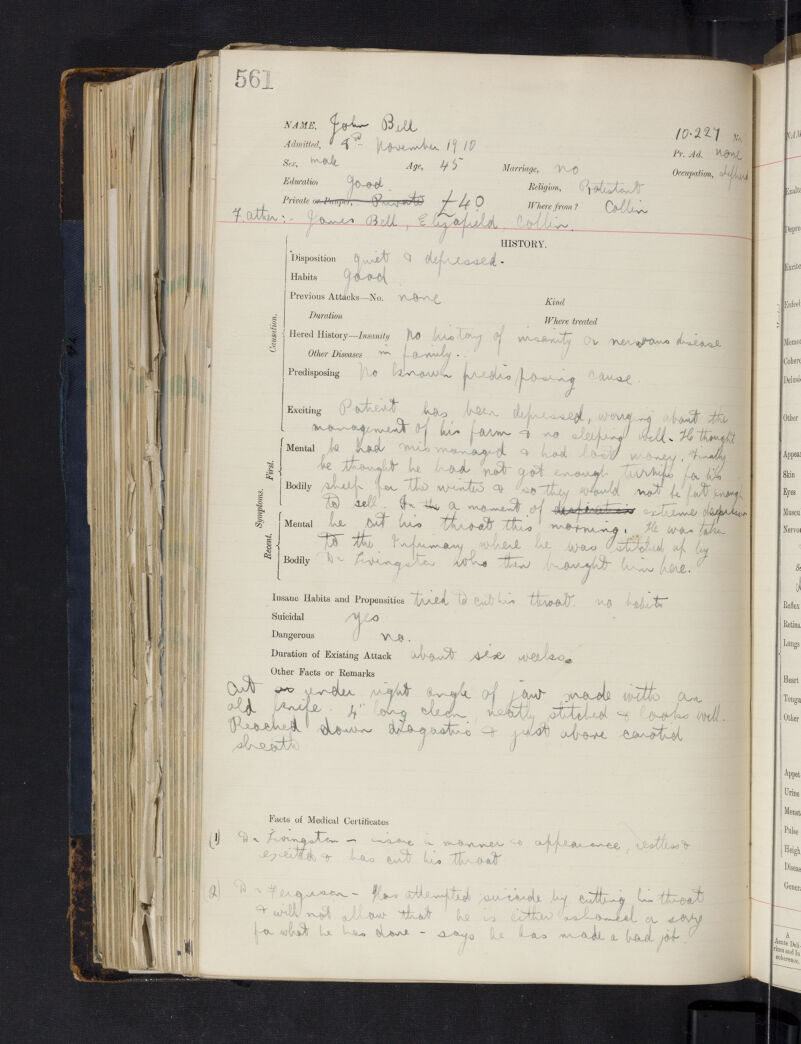 561
NAME, John Bell 10.227 No.
Admitted, 8th November 1910 Pr. Ad. none
Sex, male Age, 45 Marriage, no Occupation, shepherd
Education good. Religion, Protestant
Private or Pauper, Private £40 Where from? Collin
Father:- James Bell, Elizafield, Collin.
HISTORY.
Causation.
Disposition quiet & depressed.
Habits good
Previous Attacks—No. none Kind
Duration Where treated
Hered History—Insanity No history of insanity or nervous disease
Other Diseases in family.
Predisposing No known predisposing cause.
Exciting Patient has been depressed, worrying about the
management of his farm & no sleeping well. He thought
Symptoms.
First.
Mental he had mismanaged & had lost money. Finally
he thought he had not got enough turnips for his
Bodily sheep for the winter & so they would not be fat enough
to sell. In a moment of desperation extreme
Recent.
Mental he cut his throat this morning. He was taken
to the Infirmary where he was stitched up by
Bodily Dr Livingston who then brought him here.
Insane Habits and Propensities tried to cut his throat. no habits
Suicidal yes
Dangerous no.
Duration of Existing Attack about six weeks.
Other Facts or Remarks
Cut under right angle of jaw made with an
old knife. 4" long clean, neatly stitched & looks well.
Reached down digastric & just above carotid
sheath
Facts of Medical Certificates
(1) Dr Livingston - insane in manner & appearance, restless &
excited & has cut his throat
(2) Dr Ferguson - Has attempted suicide by cutting his throat
& will not allow that he is either ashamed or sorry
for what he has done - says he has made a bad job